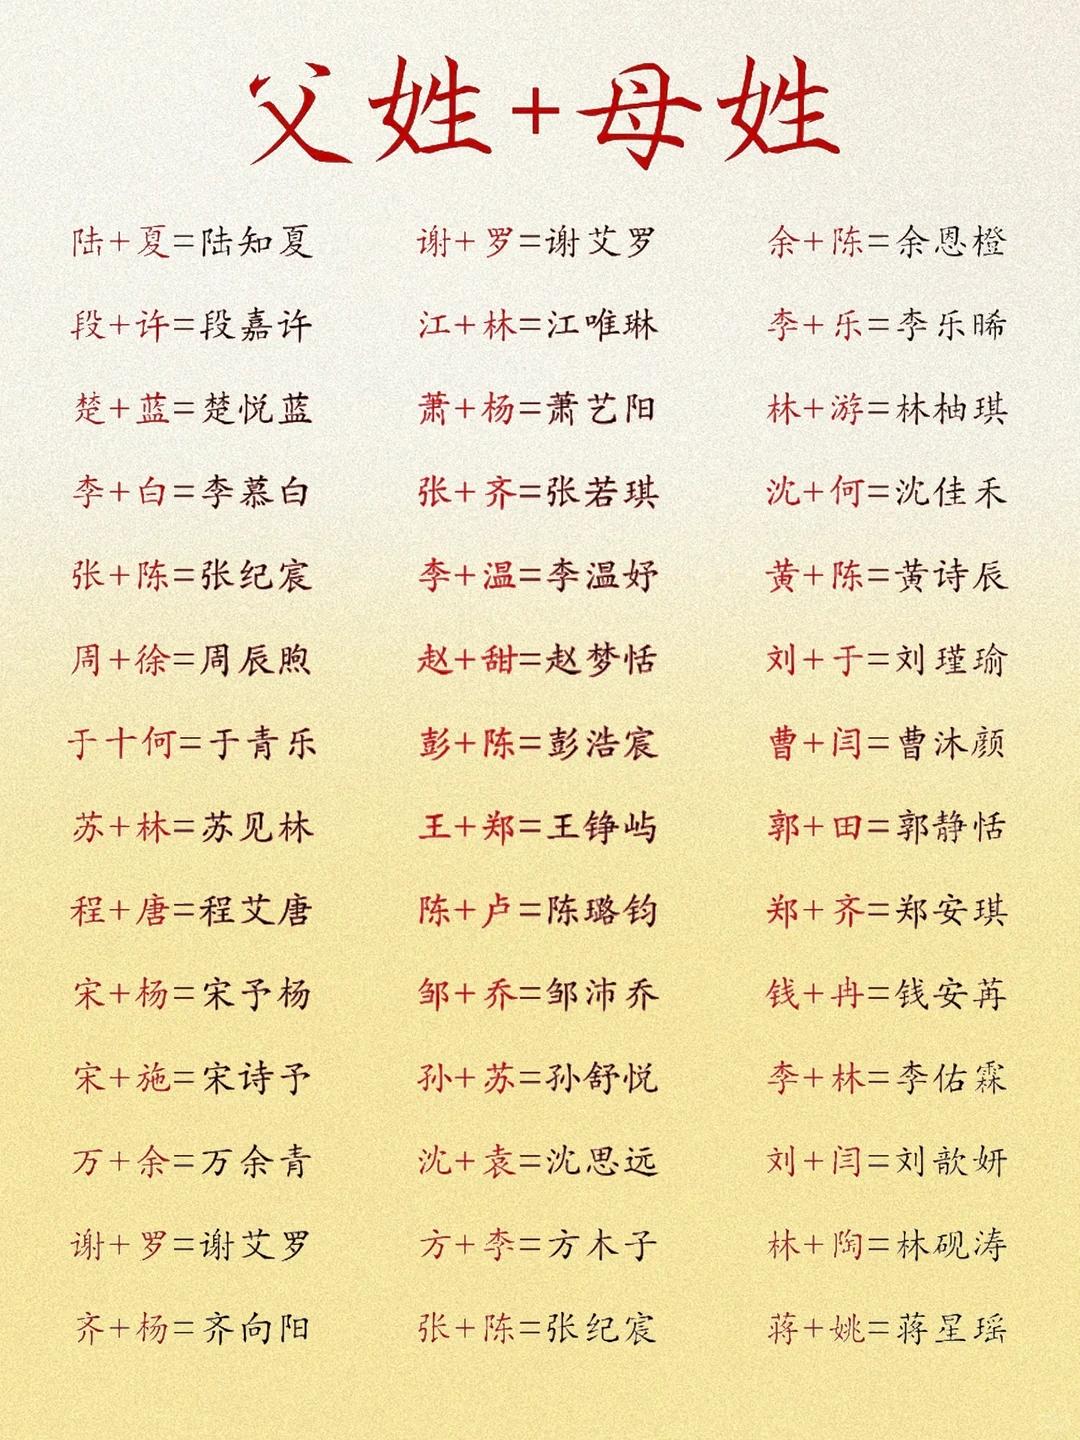 父姓+母姓
陆+夏=陆知夏 谢+罗=谢艾罗 余+陈=余恩橙
段+许=段嘉许 江+林=江唯琳 李+乐=李乐晞
楚+蓝=楚悦蓝 萧+杨=萧艺阳 林+游=林柚琪
李+白=李慕白 张+齐=张若琪 沈+何=沈佳禾
张+陈=张纪宸 李+温=李温妤 黄+陈=黄诗辰
周+徐=周辰煦 赵+甜=赵梦恬 刘+于=刘瑾瑜
于十何=于青乐 彭+陈=彭浩宸 曹+闫=曹沐颜
苏+林=苏见林 王+郑=王铮屿 郭+田=郭静恬
程+唐=程艾唐 陈+卢=陈璐钧 郑+齐=郑安琪
宋+杨=宋予杨 邹+乔=邹沛乔 钱+冉=钱安苒
宋+施=宋诗予 孙+苏=孙舒悦 李+林=李佑霖
万+余=万余青 沈+袁=沈思远 刘+闫=刘歆妍
谢+罗=谢艾罗 方+李=方木子 林+陶=林砚涛
齐+杨=齐向阳 张+陈=张纪宸 蒋+姚=蒋星瑶